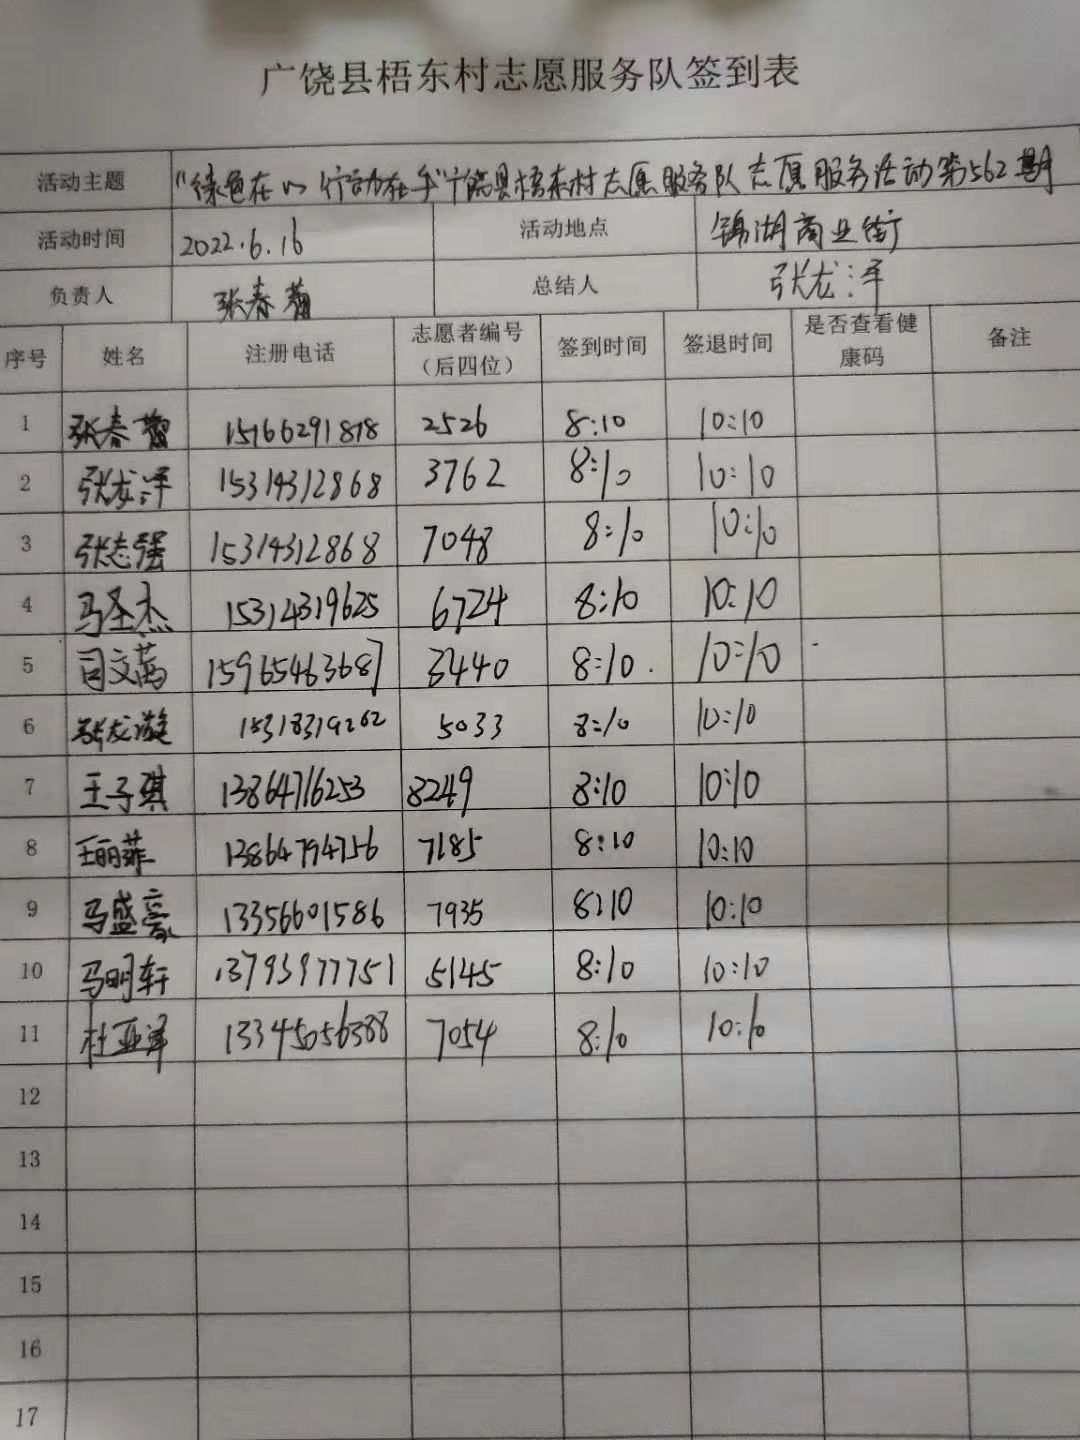 广饶县梧东村志愿服务队签到表
活动主题 "绿色在心 行动在手"广饶县梧东村志愿服务队志愿服务活动第562期
活动时间 2022.6.16 活动地点 锦湖商业街
负责人 张春 总结人 张龙泽
序号 姓名 注册电话 志愿者编号（后四位） 签到时间 签退时间 是否查看健康码 备注
1 张春 15166291878 2526 8:10 10:10
2 张龙泽 15314312868 3762 8:10 10:10
3 张志强 15314312868 7048 8:10 10:10
4 马圣杰 15314319625 6724 8:10 10:10
5 司文 15965463687 3440 8:10 10:10
6 张龙 15318319262 5033 8:10 10:10
7 王子琪 13864716253 8249 8:10 10:10
8 王丽菲 13864794756 7185 8:10 10:10
9 马盛豪 13356601586 7935 8:10 10:10
10 马明轩 13793977751 5145 8:10 10:10
11 杜亚泽 13345056388 7054 8:10 10:10
12
13
14
15
16
17